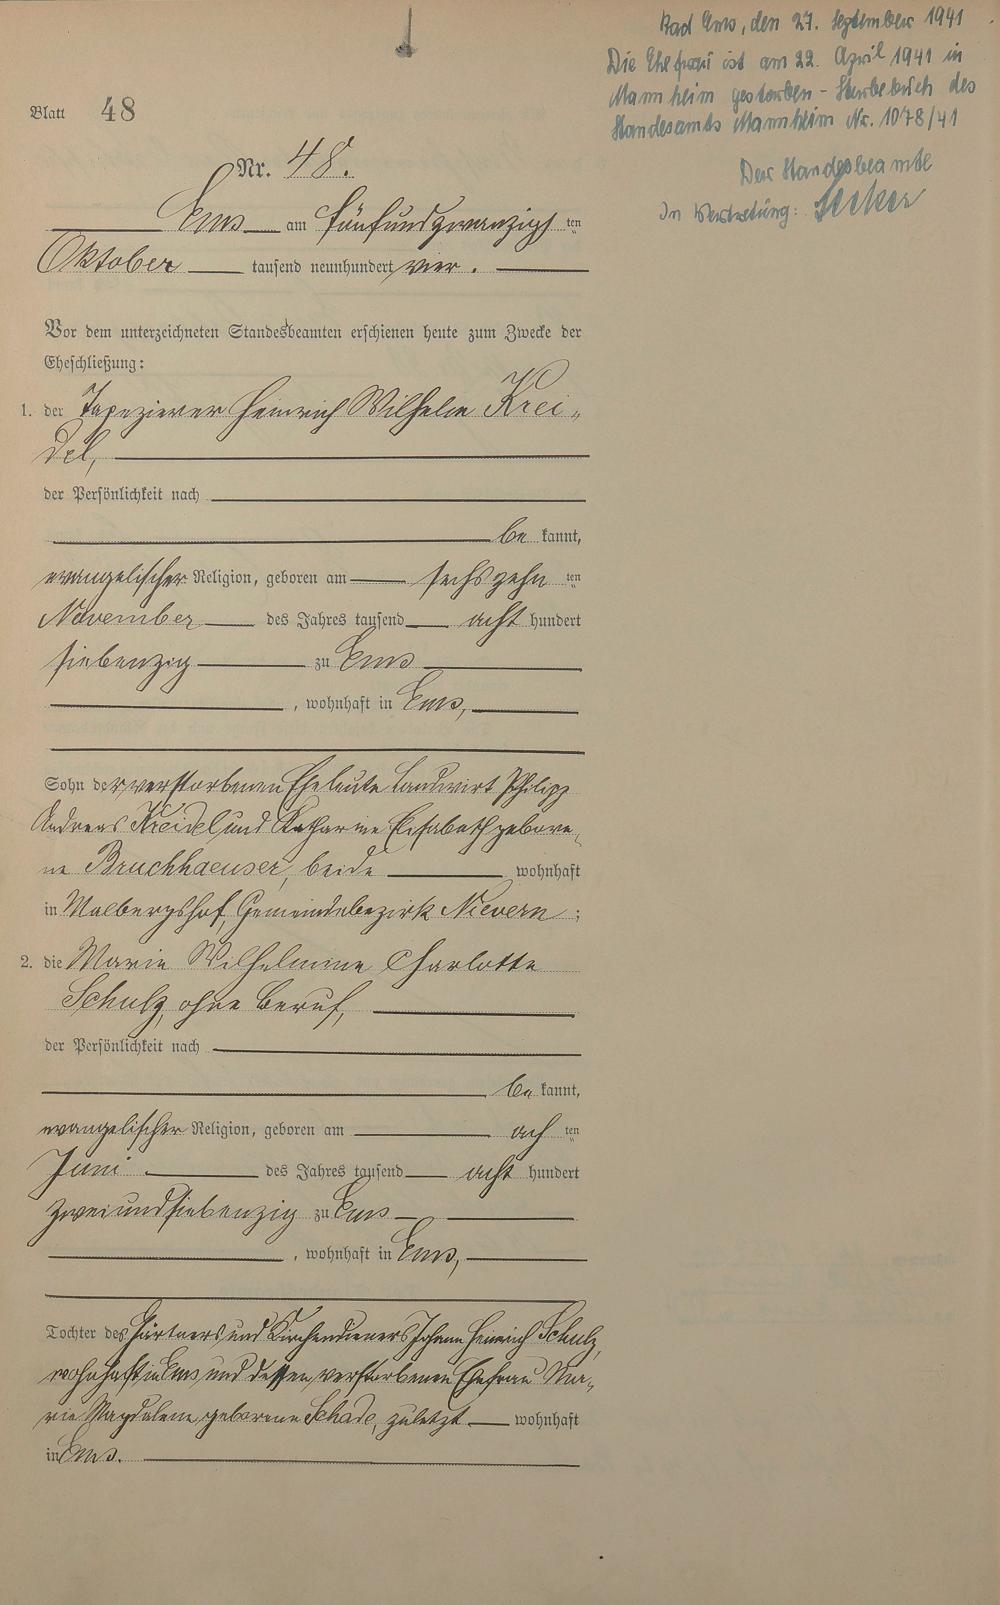 Bad Ems, den 27. September 1941
Die Ehefrau ist am 22. April 1941 in
Mannheim gestorben - Sterbebuch des
Standesamts Mannheim Nr. 1078/41
Der Standesbeamte
In Vertretung:
Blatt 48
Nr. 48.
Ems am fünfundzwanzigsten
Oktober tausend neunhundert vier.
Vor dem unterzeichneten Standesbeamten erschienen heute zum Zwecke der
Eheschließung:
1. der Tapezierer Heinrich Wilhelm Krei-
del,
der Persönlichkeit nach
be kannt,
evangelischer Religion, geboren am sechszehn ten
November des Jahres tausend acht hundert
siebenzig zu Ems
, wohnhaft in Ems,
Sohn der verstorbenen Eheleute Landwirt Philipp
Andreas Kreidel und Katharine Elisabeth gebore-
ne Bruchhaeuser, beide wohnhaft
in Malbergshof, Gemeindebezirk Nievern;
2. die Marie Wilhelmine Charlotte
Schulz, ohne Beruf,
der Persönlichkeit nach
be kannt,
evangelischer Religion, geboren am ach ten
Juni des Jahres tausend acht hundert
zweiundsiebenzig zu Ems
, wohnhaft in Ems,
Tochter des Gärtners und Kirchendieners Johann Heinrich Schulz,
wohnhaft in Ems und dessen verstorbenen Ehefrau Ma-
rie Magdalene geborene Schade, zuletzt wohnhaft
in Ems.